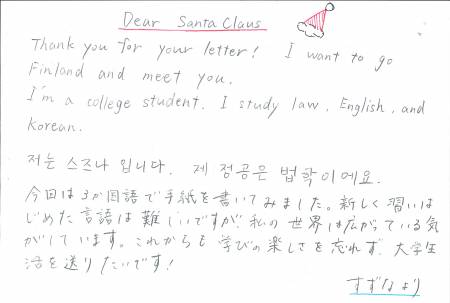 Dear Santa Claus
Thank you for your letter! I want to go
Finland and meet you.
I'm a college student. I study law, English, and
Korean.
저는 스즈나 입니다. 제 정공은 법학이에요.
今回は3か国語で手紙を書いてみました。新しく習いは
じめた言語は難しいですが、私の世界は広がっている気
がしています。これからも学びの楽しさを忘れず、大学生
活を送りたいです!
すずなより